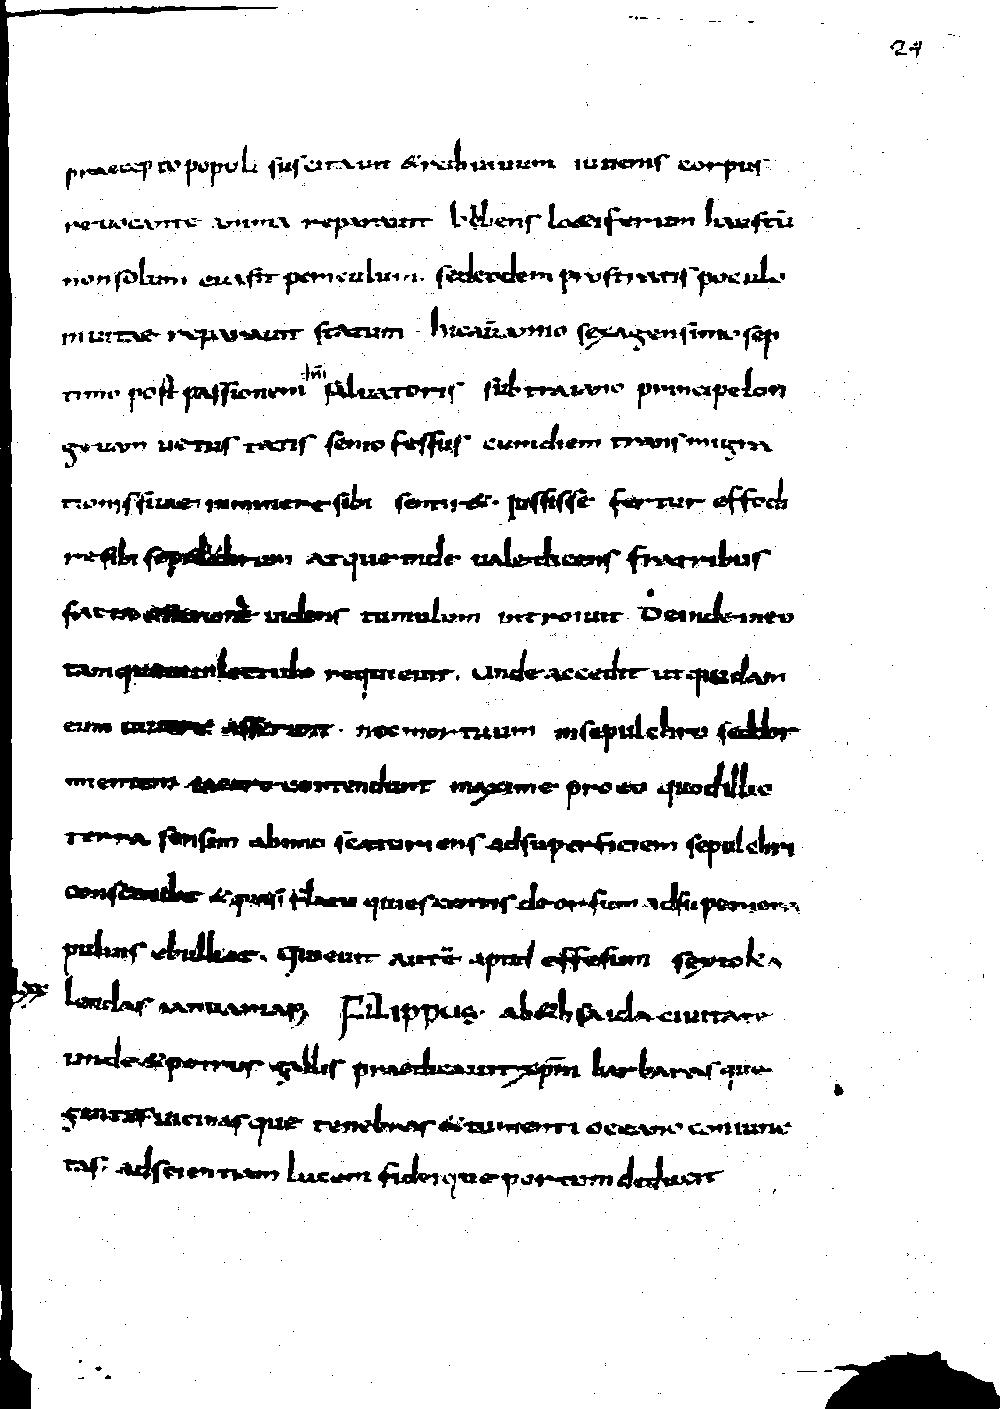 24
praecepto populi suscitauit & rediuiuum iuuenis corpus
reuocante anima reparauit bibens loetiferum haustū
non solum euasit periculum. sed eodem prostratis poculo
in uitae reparauit statum. hic anno sexagensimo sep
timo post passionem dn̄i saluatoris sub traiano principe lon
geuan uetustatis senio fessus cum diem transmigra
tionis suae imminere sibi sentir&. iussisse fertur effodi
re sibi sepulchrum atque inde ualedicens fratribus
facta oratione uidens tumulum introiuit Deinde in eo
tamquam in lectulo requieuit. unde accedit ut quidam
eum uiuere asserant. nec mortuum in sepulchro sed dor
mientem iacere contendunt maxime pro eo quod illic
terra sensim ab imo scaturiens ad superficiem sepulchri
conscendat & quasi flatu quiescentis deorsum ad superiora
puluis ebulliat. Quieuit autē apud effesum sexto ka
lendas ianuarias FILIPPUS. a b&hsaida ciuitate
unde & petrus gallis praedicauit xp̄m barbarasque
gentes uicinasque tenebris & tumenti oceano coniunc
tas. ad scientiam lucem fideique portum deduxit